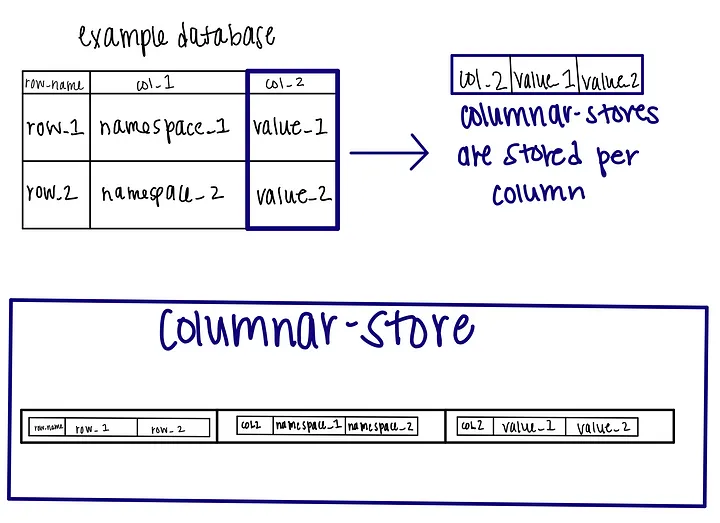 example database
row_name col_1 col_2
row_1 namespace_1 value_1
row_2 namespace_2 value_2
col_2 value_1 value_2
columnar-stores
are stored per
column
columnar-store
row_name row_1 row_2 col2 namespace_1 namespace_2 col2 value_1 value_2